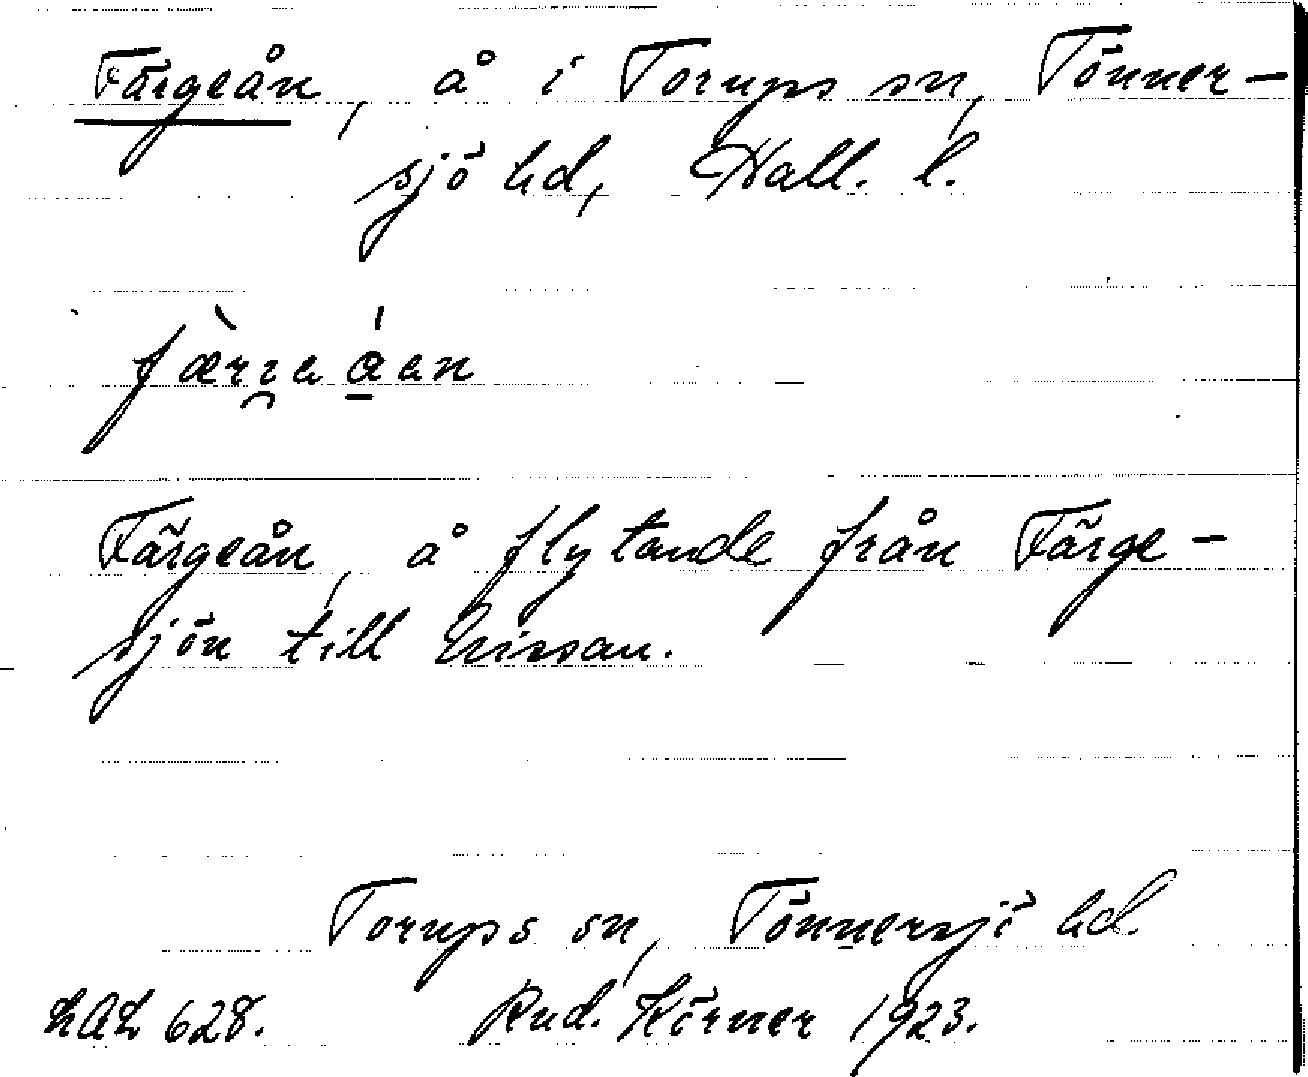 Färgeån, å i Torups sn, Tönner-
sjö hd, Hall. l.
Färgeån, å flytande från Färge-
sjön till Nissan.
Torups sn, Tönnersjö hd.
LAL 628. Rud. Körner 1923.